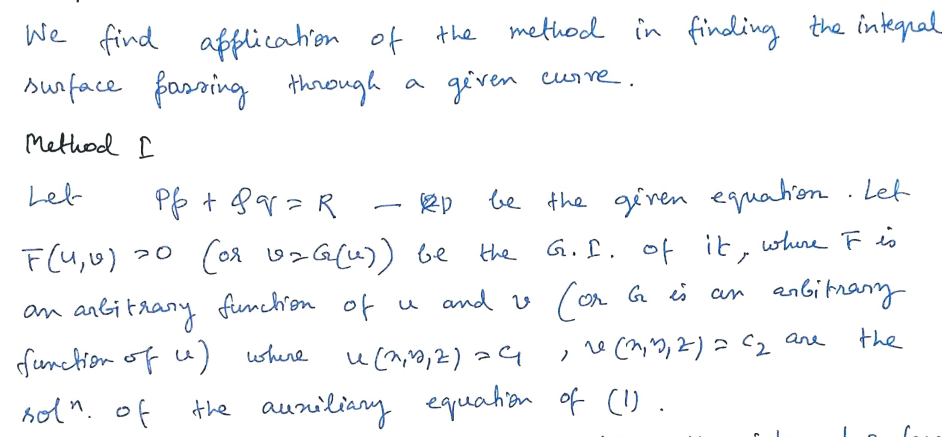 We find application of the method in finding the integral
surface passing through a given curve.
Method I
Let Pp + Qq = R — (1) be the given equation. Let
F(u,v) = 0 (or v = G(u)) be the G.I. of it, where F is
an arbitrary function of u and v (or G is an arbitrary
function of u) where u(x,y,z) = c₁ , v(x,y,z) = c₂ are the
solⁿ. of the auxiliary equation of (1).